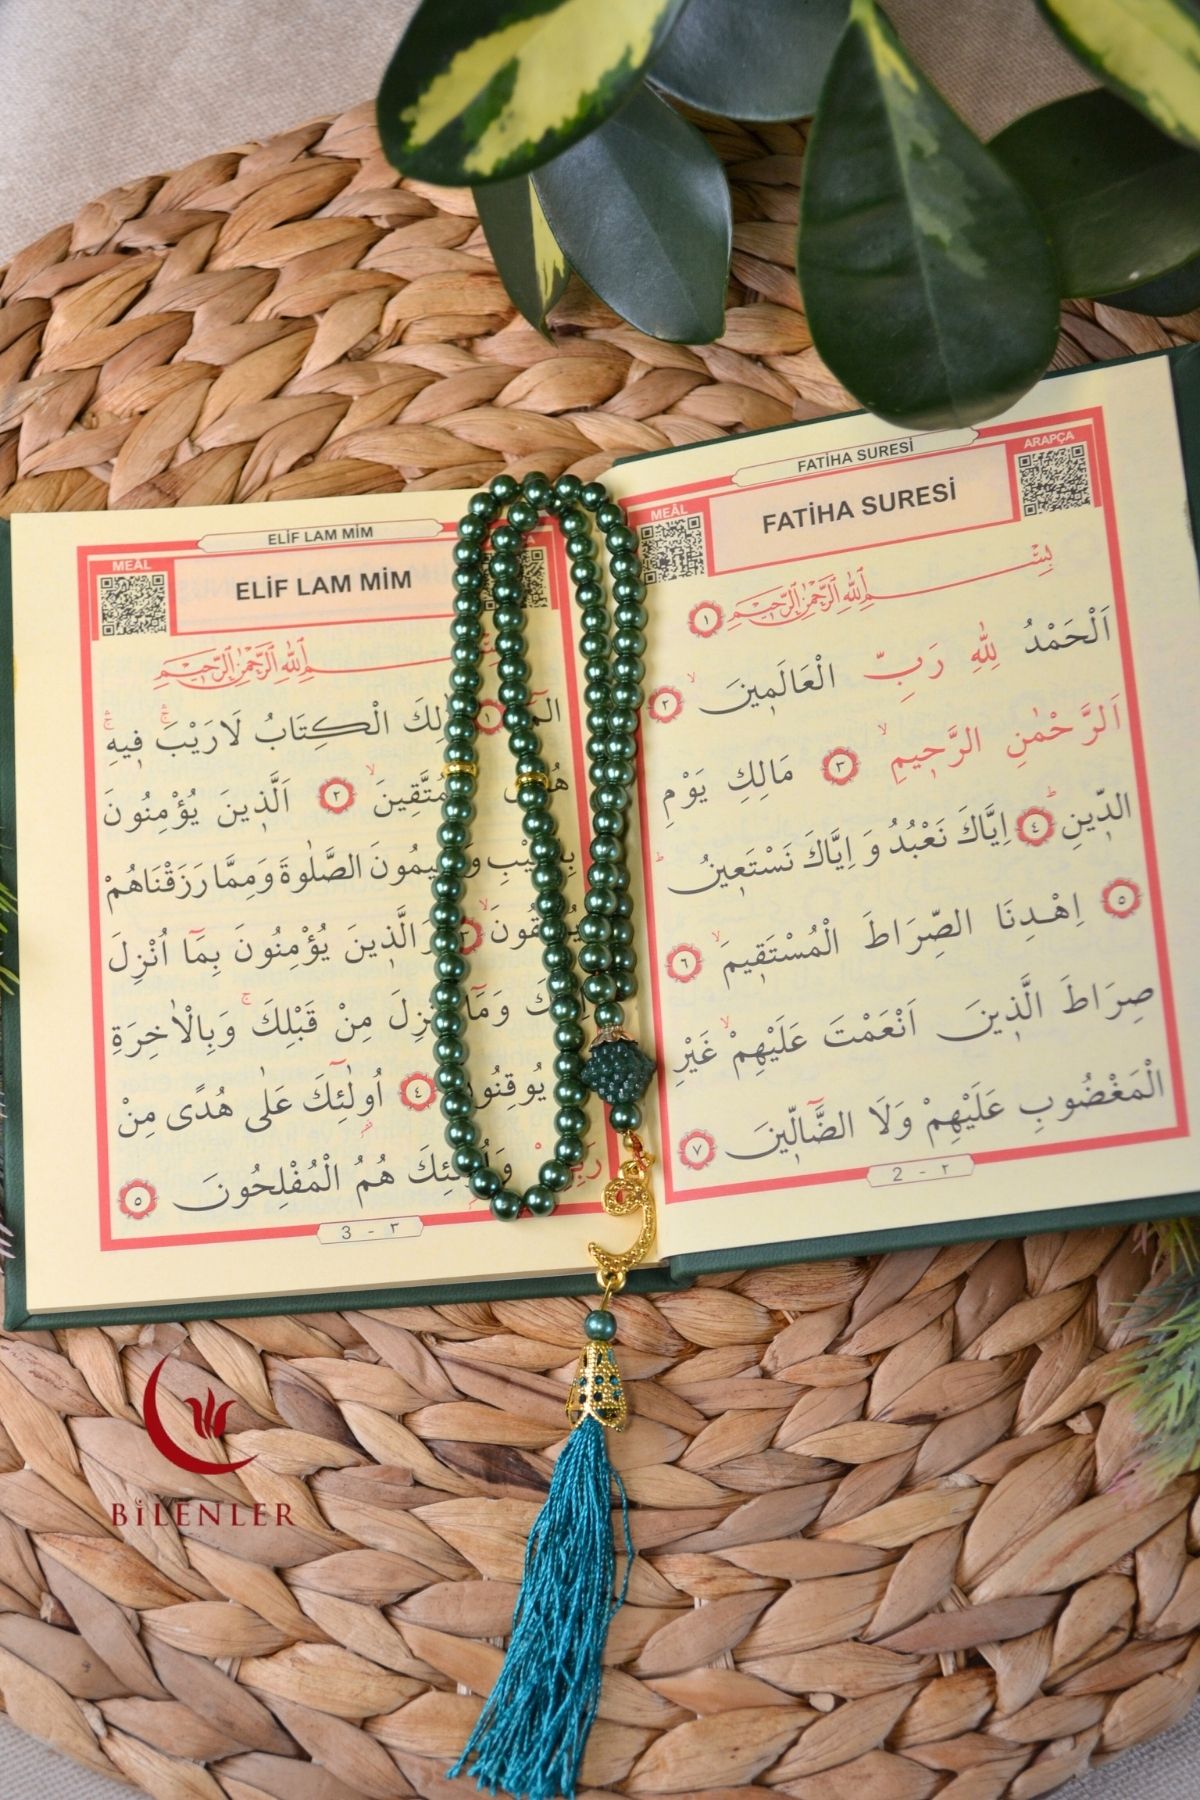 FATİHA SURESİ
MEÂL
FATİHA SURESİ
ARAPÇA
بِسْــــمِ اللهِ الرَّحْمٰنِ الرَّحِيمِ ١
اَلْحَمْدُ لِلّٰهِ رَبِّ الْعَالَمِينَ ٢
اَلرَّحْمٰنِ الرَّحِيمِ ٣ مَالِكِ يَوْمِ
الدِّينِ ٤ اِيَّاكَ نَعْبُدُ وَ اِيَّاكَ نَسْتَعِينُ
٥ اِهْدِنَا الصِّرَاطَ الْمُسْتَقِيمَ ٦
صِرَاطَ الَّذِينَ اَنْعَمْتَ عَلَيْهِمْ غَيْرِ
الْمَغْضُوبِ عَلَيْهِمْ وَلَا الضَّالِّينَ ٧
2 - ٢
ELİF LAM MİM
MEÂL
ELİF LAM MİM
اللهِ الرَّحْمٰنِ الرَّحِيمِ
١ الْكِتَابُ لَارَيْبَ فِيهِ
٢ اَلَّذِينَ يُؤْمِنُونَ
الصَّلٰوةَ وَمِمَّا رَزَقْنَاهُمْ
٣ الَّذِينَ يُؤْمِنُونَ بِمَا اُنْزِلَ
مِنْ قَبْلِكَ وَبِالْاٰخِرَةِ
٤ اُولٰئِكَ عَلٰى هُدًى مِنْ
هُمُ الْمُفْلِحُونَ ٥
3 - ٣
BİLENLER